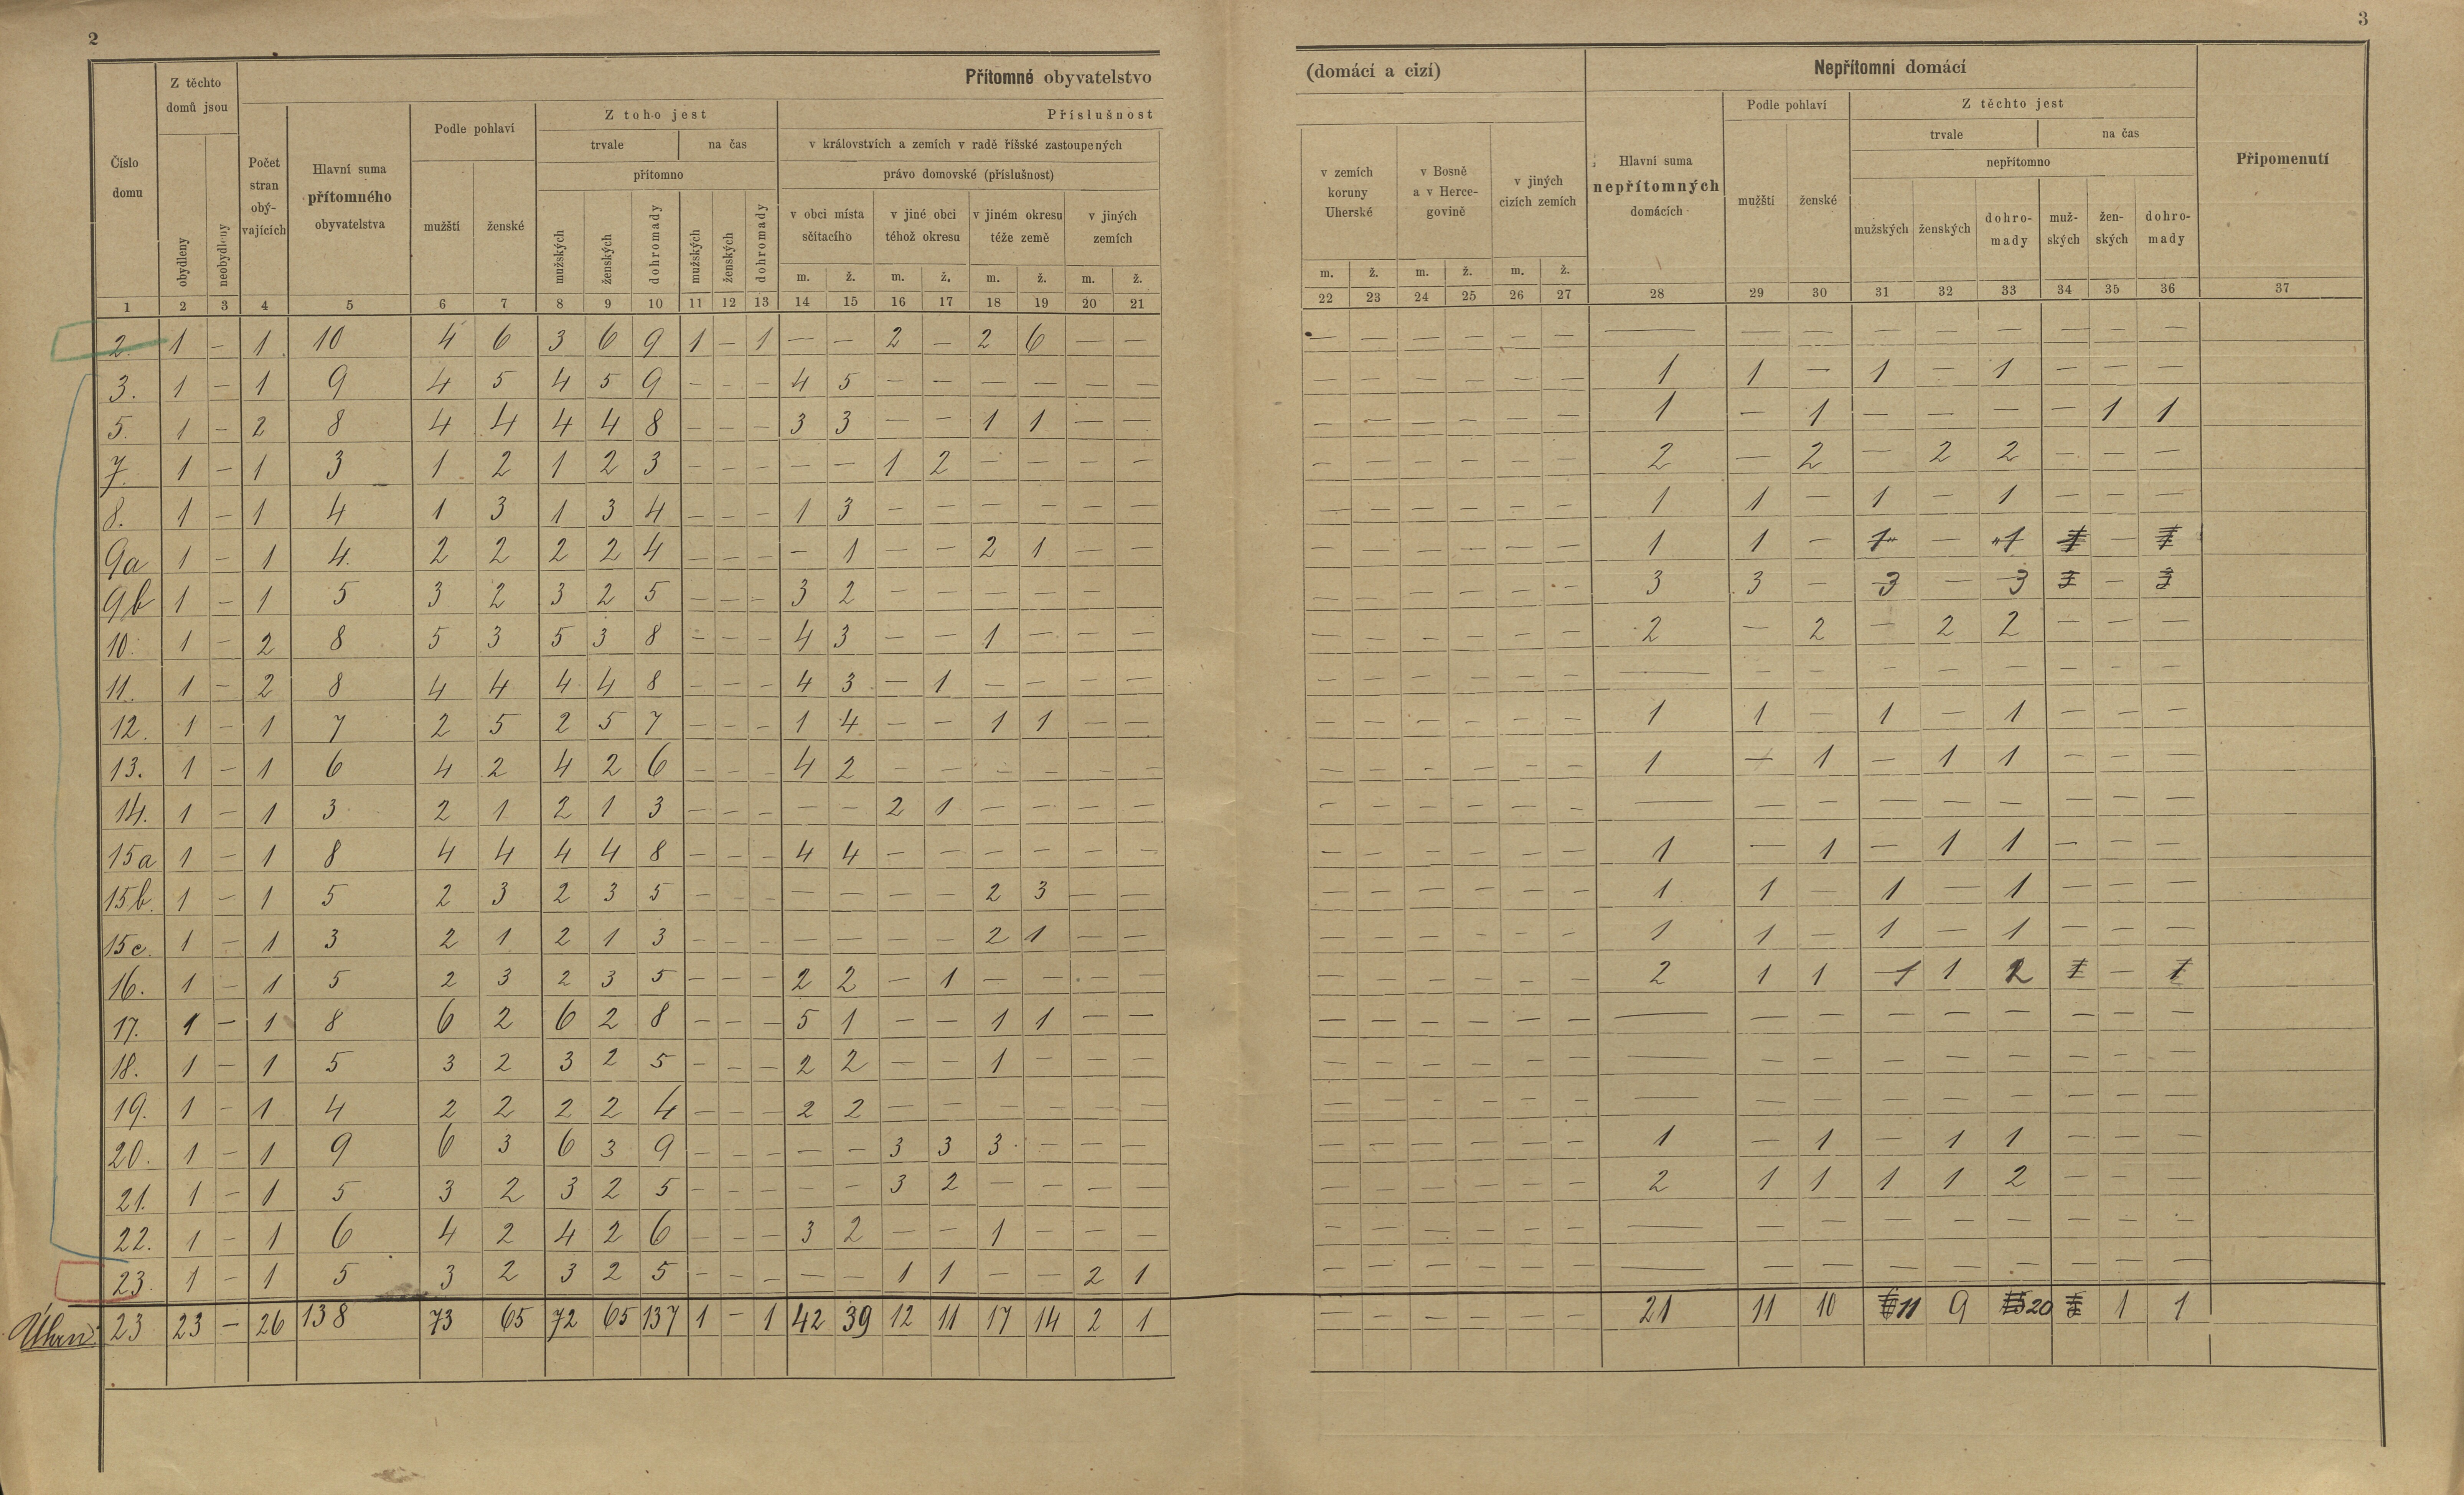 2
3
Číslo domu
Z těchto domů jsou
Přítomné obyvatelstvo
(domácí a cizí)
Nepřítomní domácí
Připomenutí
obydleny
neobydleny
Počet stran obývajících
Hlavní suma přítomného obyvatelstva
Podle pohlaví
mužští
ženské
Z toho jest
trvale
na čas
přítomno
mužských
ženských
dohromady
mužských
ženských
dohromady
Příslušnost
v královstvích a zemích v radě říšské zastoupených
právo domovské (příslušnost)
v obci místa sčítacího
v jiné obci téhož okresu
v jiném okresu téže země
v jiných zemích
v zemích koruny Uherské
v Bosně a v Hercegovině
v jiných cizích zemích
Hlavní suma nepřítomných domácích
Podle pohlaví
mužští
ženské
Z těchto jest
trvale
na čas
nepřítomno
mužských
ženských
dohromady
mužských
ženských
dohromady
m. ž. m. ž. m. ž. m. ž. m. ž. m. ž. m. ž.
1 2 3 4 5 6 7 8 9 10 11 12 13 14 15 16 17 18 19 20 21 22 23 24 25 26 27 28 29 30 31 32 33 34 35 36 37
2. 1 – 1 10 4 6 3 6 9 1 – 1 – – 2 – 2 6 – – – – – – – – – – – – – – – – –
3. 1 – 1 9 4 5 4 5 9 – – – 4 5 – – – – – – – – – – – – 1 1 – 1 – 1 – – –
5. 1 – 2 8 4 4 4 4 8 – – – 3 3 – – 1 1 – – – – – – – – 1 – 1 – – – – 1 1
7. 1 – 1 3 1 2 1 2 3 – – – – – 1 2 – – – – – – – – – – 2 – 2 – 2 2 – – –
8. 1 – 1 4 1 3 1 3 4 – – – 1 3 – – – – – – – – – – – – 1 1 – 1 – 1 – – –
9a 1 – 1 4. 2 2 2 2 4 – – – – 1 – – 2 1 – – – – – – – – 1 1 – 1 – 1 1 – 1
9b 1 – 1 5 3 2 3 2 5 – – – 3 2 – – – – – – – – – – – – 3 3 – 3 – 3 3 – 3
10. 1 – 2 8 5 3 5 3 8 – – – 4 3 – – 1 – – – – – – – – – 2 – 2 – 2 2 – – –
11. 1 – 2 8 4 4 4 4 8 – – – 4 3 – 1 – – – – – – – – – – – – – – – – – – –
12. 1 – 1 7 2 5 2 5 7 – – – 1 4 – – 1 1 – – – – – – – – 1 1 – 1 – 1 – – –
13. 1 – 1 6 4 2 4 2 6 – – – 4 2 – – – – – – – – – – – – 1 – 1 – 1 1 – – –
14. 1 – 1 3 2 1 2 1 3 – – – – – 2 1 – – – – – – – – – – – – – – – – – – –
15a 1 – 1 8 4 4 4 4 8 – – – 4 4 – – – – – – – – – – – – 1 – 1 – 1 1 – – –
15b. 1 – 1 5 2 3 2 3 5 – – – – – – – 2 3 – – – – – – – – 1 1 – 1 – 1 – – –
15c. 1 – 1 3 2 1 2 1 3 – – – – – – – 2 1 – – – – – – – – 1 1 – 1 – 1 – – –
16. 1 – 1 5 2 3 2 3 5 – – – 2 2 – 1 – – – – – – – – – – 2 1 1 1 1 2 1 – 1
17. 1 – 1 8 6 2 6 2 8 – – – 5 1 – – 1 1 – – – – – – – – – – – – – – – – –
18. 1 – 1 5 3 2 3 2 5 – – – 2 2 – – 1 – – – – – – – – – – – – – – – – – –
19. 1 – 1 4 2 2 2 2 4 – – – 2 2 – – – – – – – – – – – – – – – – – – – – –
20. 1 – 1 9 6 3 6 3 9 – – – – – 3 3 3 – – – – – – – – – 1 – 1 – 1 1 – – –
21. 1 – 1 5 3 2 3 2 5 – – – – – 3 2 – – – – – – – – – – 2 1 1 1 1 2 – – –
22. 1 – 1 6 4 2 4 2 6 – – – 3 2 – – 1 – – – – – – – – – – – – – – – – – –
23. 1 – 1 5 3 2 3 2 5 – – – – – 1 1 – – 2 1 – – – – – – – – – – – – – – –
Úhrn: 23 23 – 26 138 73 65 72 65 137 1 – 1 42 39 12 11 17 14 2 1 – – – – – – 21 11 10 11 9 20 1 1